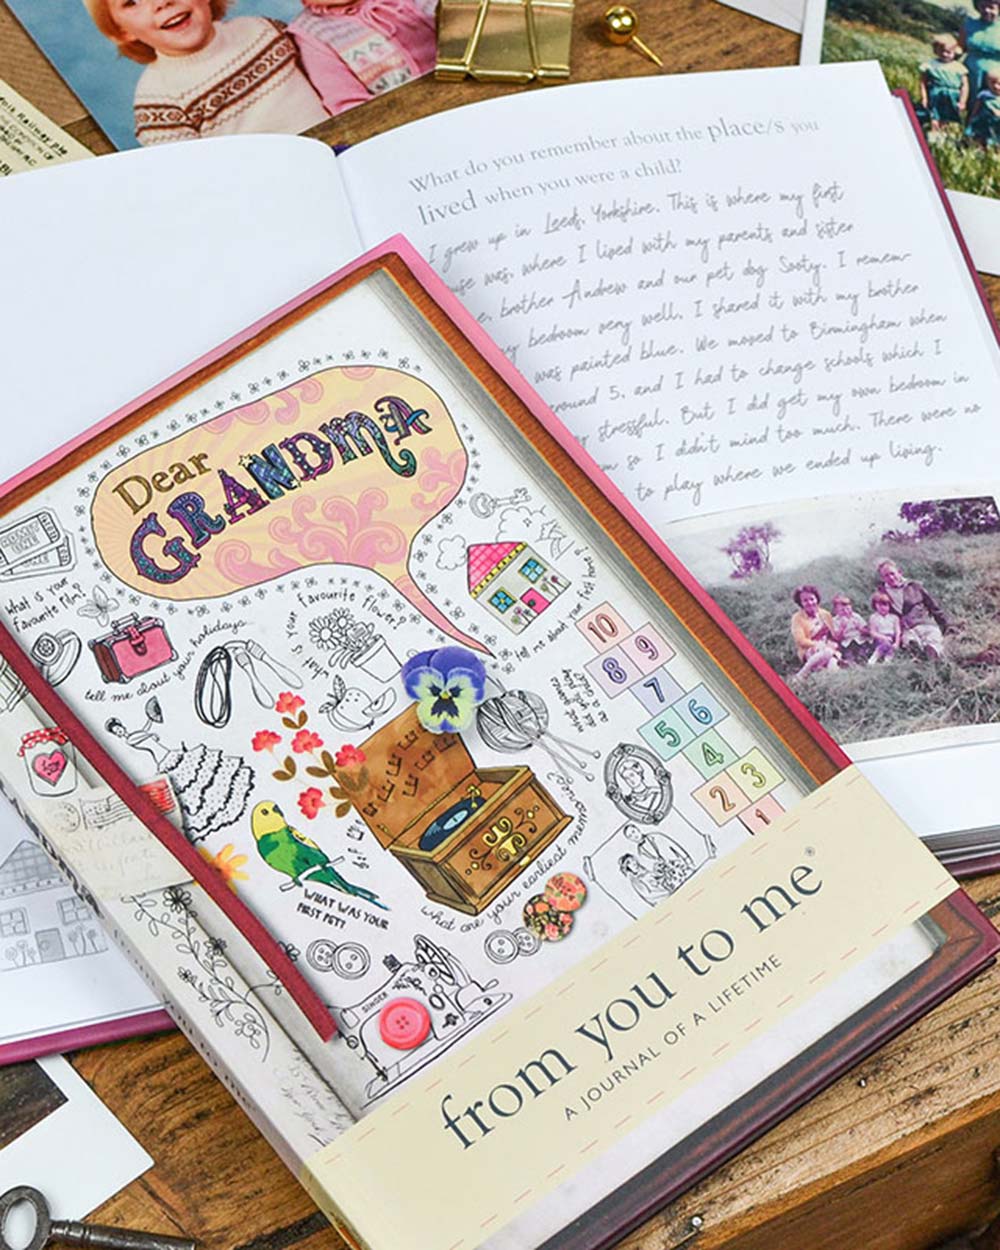 What do you remember about the place/s you
lived when you were a child?
I grew up in Leeds, Yorkshire. This is where my first
was, where I lived with my parents and sister
brother Andrew and our pet dog Sooty. I remem-
bedroom very well, I shared it with my brother
was painted blue. We moved to Birmingham when
5, and I had to change schools which I
stressful. But I did get my own bedroom in
so I didn't mind too much. There were no
to play where we ended up living.
Dear
GRANDMA
ADMIT
ONE
What is your
favourite film?
tell me about your holidays
what is your favourite flower?
tell me about your first home?
what games
did you play
as a child?
10
9
8
7
6
5
4
3
2
1
WHAT WAS YOUR
FIRST PET?
what are your earliest memories?
SINGER
from you to me®
A JOURNAL OF A LIFETIME